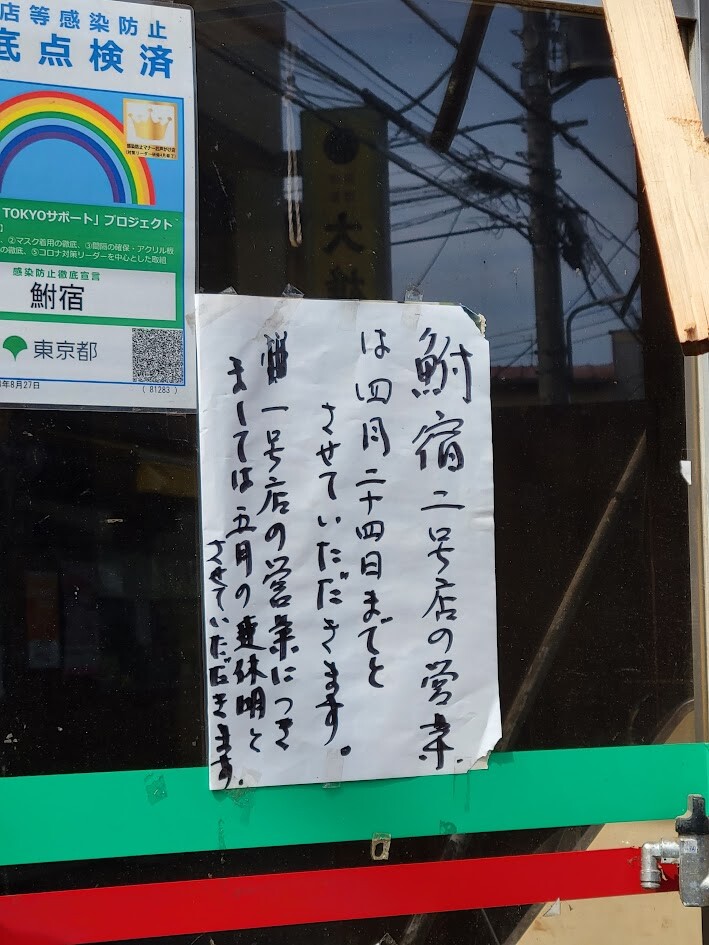 店等感染防止
底点検済
感染防止マナー声がけ店
TOKYOサポート」プロジェクト
②マスク着用の徹底、③間隔の確保・アクリル板
の徹底、⑤コロナ対策リーダーを中心とした取組
感染防止徹底宣言
鮒宿
東京都
年8月27日
( 81283 )
大
鮒宿二号店の営業
は四月二十四日までと
させていただきます。
一号店の営業につき
ましては五月の連休明と
させていただきます。